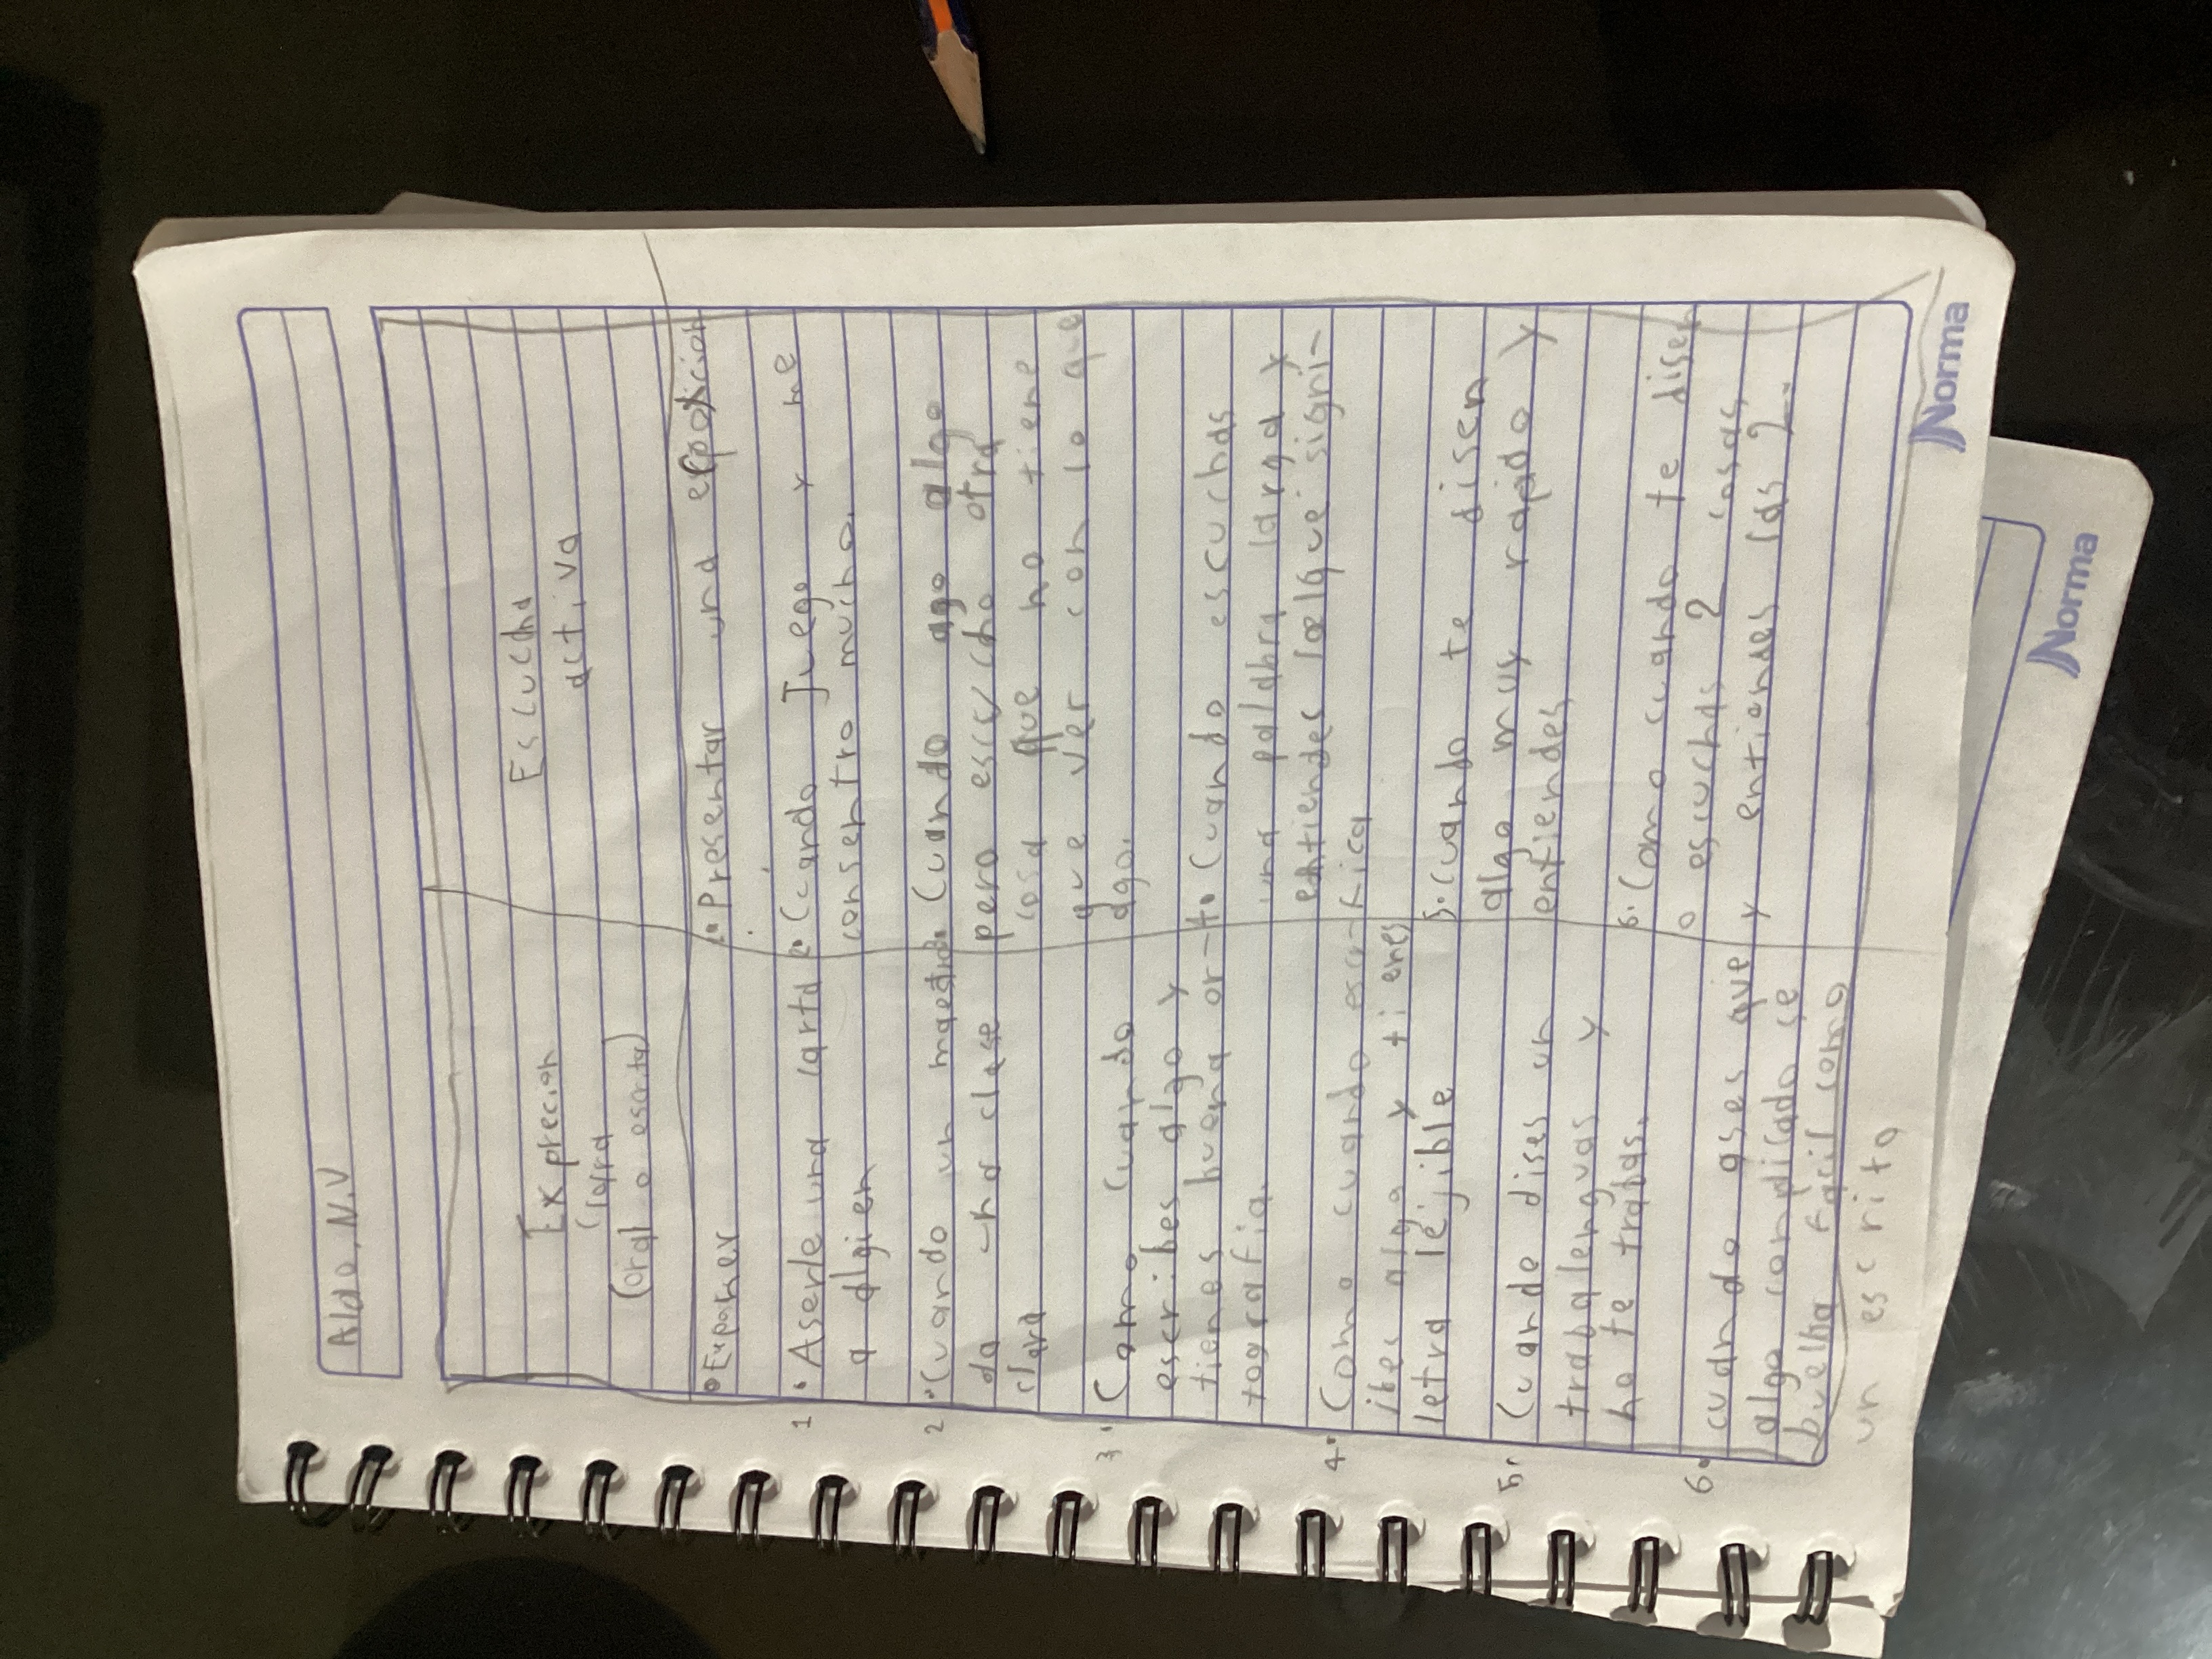 Aldo. N.V
Exprecion
Clara
(oral o escrita)
Escucha
activa
• Exponer
1• Aserle una carta
a algien
2• Cuando un maestro
da una clase
clara
3• Como cuando
escribes algo y
tienes buena or-
tografia.
4• Como cuando escr-
ibes algo y tienes
letra lejible
5• Cuande dises un
trabalenguas y
no te trabas.
6• cuando ases que
algo complicado se
buelba facil como
un escrito
1• Presentar una expoxicion
2• Cuando Juego y me
consentro mucho.
3• Cuando ago algo
pero escucho otra
cosa que no tiene
que ver con lo que
ago.
4• Cuando escuchas
una palabra larga y
entiendes loelque signi-
fica
5• cuando te disen
algo muy rapido y
entiendes
6• Como cuando te disen
o escuchas 2 cosas
y entiendes las 2.
Norma
Norma